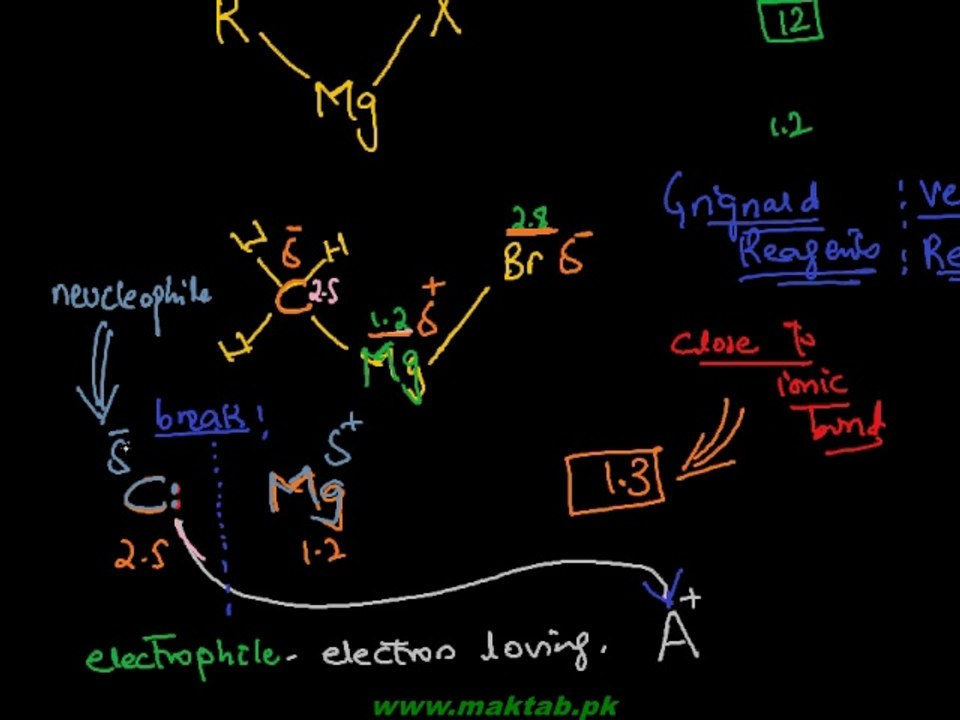 R X
Mg
12
1.2
Grignard : Ve
Reagents : Re
H δ- H
C 2.5
H
2.8
Br δ-
1.2 δ+
Mg
neucleophile
close to
ionic
bond
1.3
break!
δ- δ+
C: Mg
2.5 1.2
A+
electrophile - electros loving.
www.maktab.pk